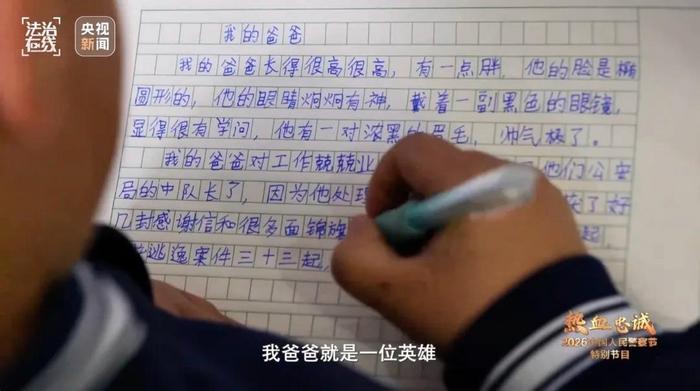 法治在线
央视新闻
我的爸爸
我的爸爸长得很高很高，有一点胖，他的脸是椭
圆形的，他的眼睛炯炯有神，戴着一副黑色的眼镜，
显得很有学问，他有一对浓黑的眉毛，帅气极了。
我的爸爸对工作兢兢业 他们公安
局的中队长了，因为他处理 了好
几封感谢信和很多面锦旗 起，
逃逸案件三十三起，
我爸爸就是一位英雄
热血忠诚
2026中国人民警察节
特别节目